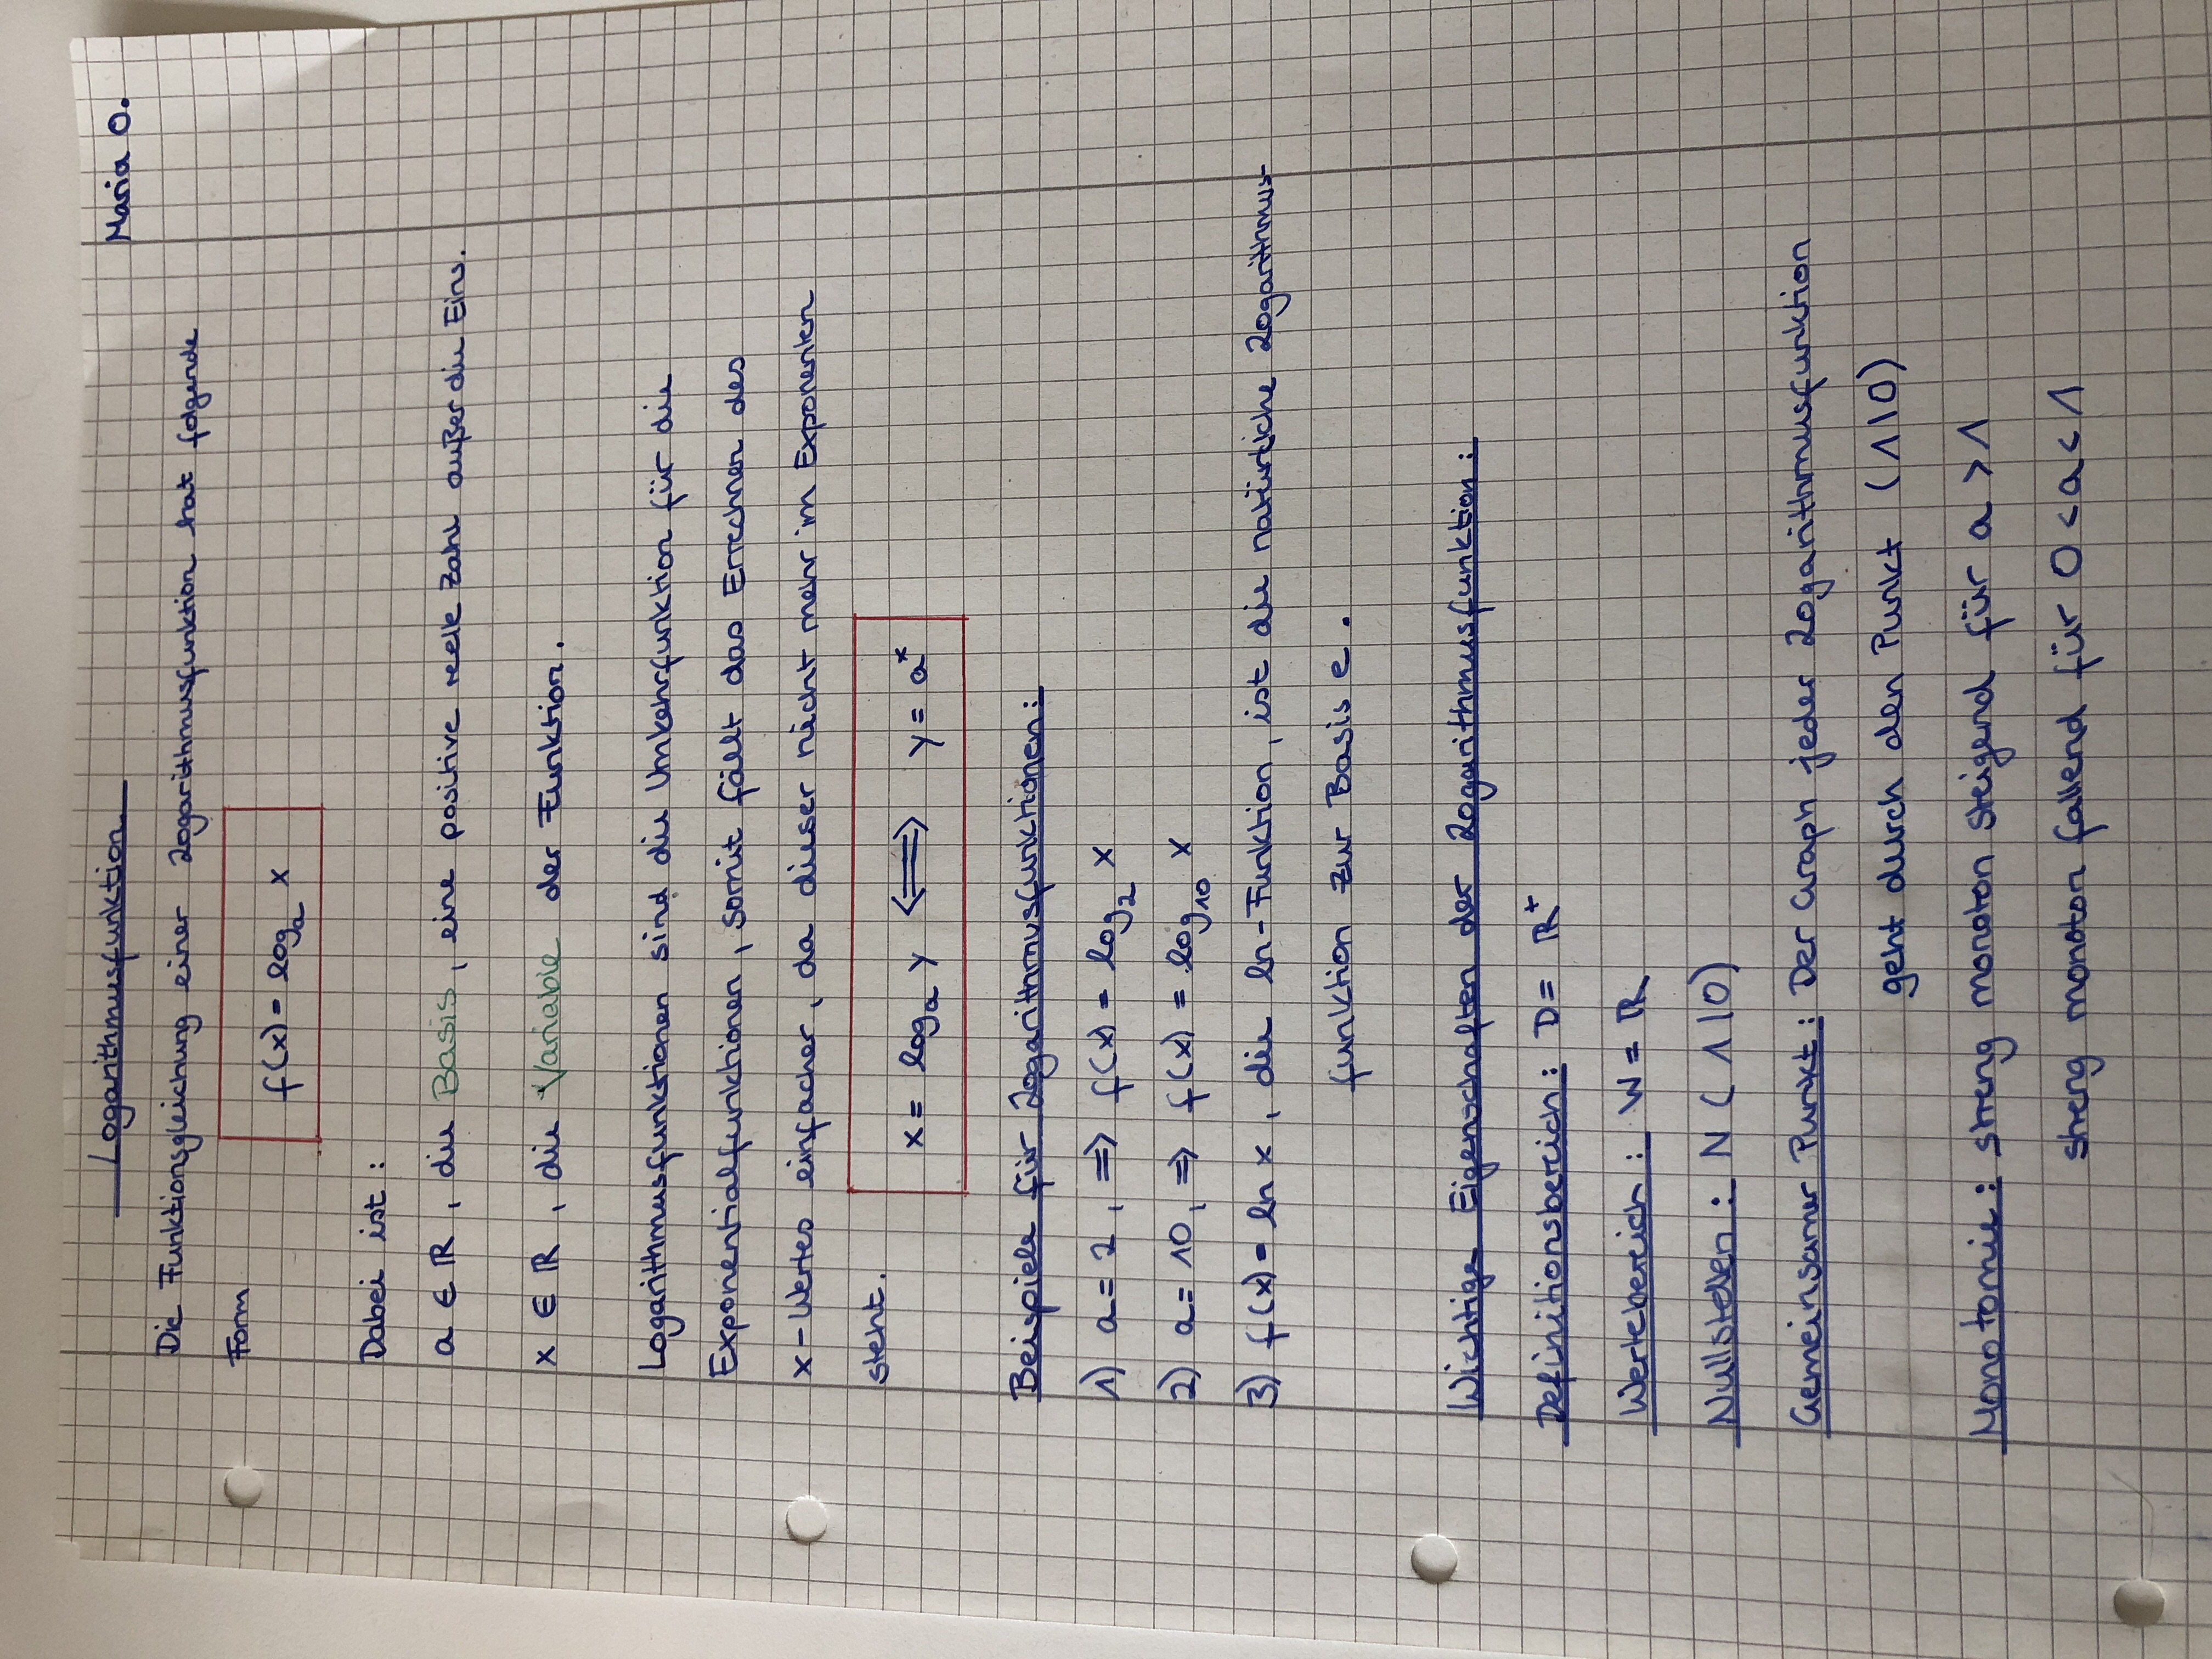 Maria O.
Logarithmusfunktion
Die Funktionsgleichung einer Logarithmusfunktion hat folgende
Form
f(x) = logₐ x
Dabei ist :
a ∈ ℝ , die Basis , eine positive reelle Zahl außer die Eins.
x ∈ ℝ , die Variable der Funktion.
Logarithmusfunktionen sind die Umkehrfunktion für die
Exponentialfunktionen , somit fällt das Errechnen des
x-Wertes einfacher , da dieser nicht mehr im Exponenten
steht.
x = logₐ y ⟺ y = aˣ
Beispiele für Logarithmusfunktionen:
1) a = 2 , ⇒ f(x) = log₂ x
2) a = 10 , ⇒ f(x) = log₁₀ x
3) f(x) = ln x , die ln-Funktion , ist die natürliche Logarithmus-
funktion zur Basis e .
Wichtige Eigenschaften der Logarithmusfunktion :
Definitionsbereich : D = ℝ⁺
Wertebereich : W = ℝ
Nullstellen : N ( 1 | 0 )
Gemeinsamer Punkt : Der Graph jeder Logarithmusfunktion
geht durch den Punkt ( 1 | 0 )
Monotonie : streng monoton steigend für a > 1
streng monoton fallend für 0 < a < 1